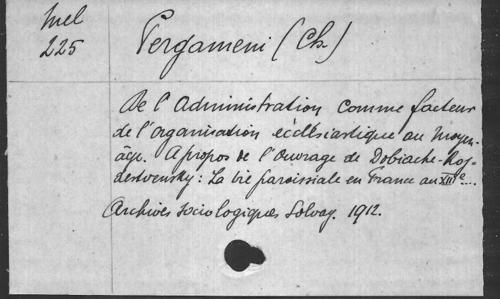 Mel
225
Pergameni (Ch.)
De l'Administration comme facteur
de l'organisation ecclésiastique au Moyen-
âge. A propos de l'Ouvrage de Dobiache-Roj-
destvensky : La vie paroissiale en France au XIIIe...
Archives Sociologiques Solvay. 1912.